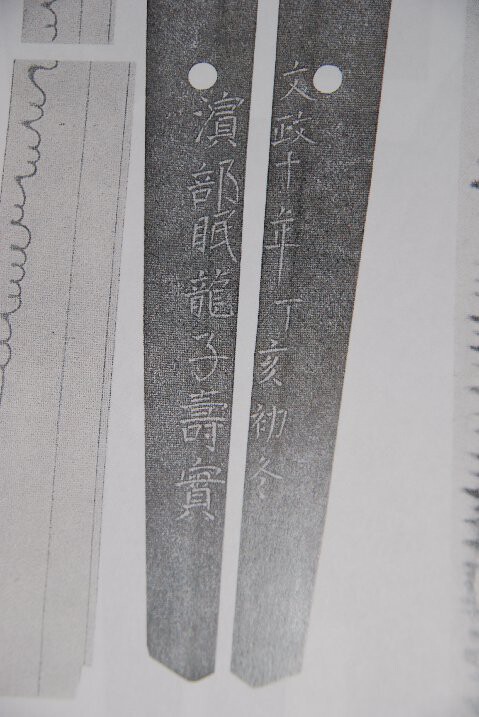 文政十年丁亥初冬
濱部眠龍子壽實